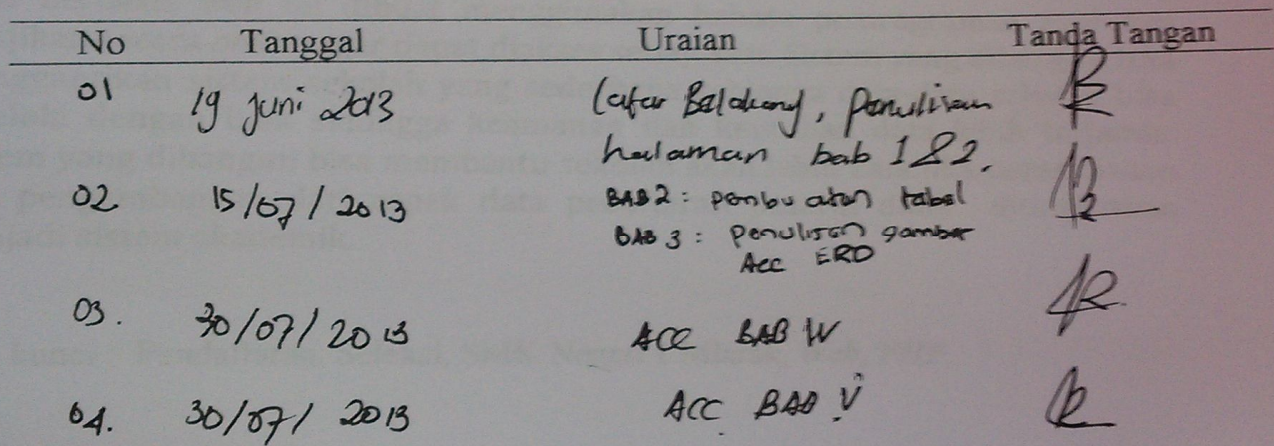 No Tanggal Uraian Tanda Tangan
01 19 Juni 2013 Latar Belakang, Penulisan
halaman bab 1 & 2.
02 15/07/2013 BAB 2 : penbuatan tabel
BAB 3 : penulisan gambar
Acc ERD
03. 30/07/2013 ACC BAB IV
04. 30/07/2013 ACC BAB V